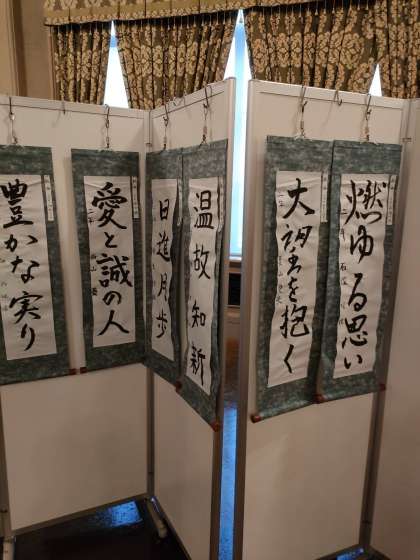 豊かな実り
愛と誠の人
日進月歩
温故知新
大望を抱く
燃ゆる思い